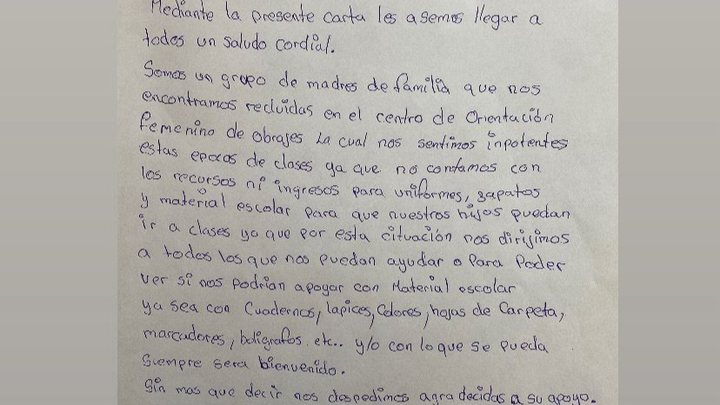 Mediante la presente carta les asemos llegar a
todos un saludo cordial.
Somos un grupo de madres de familia que nos
encontramos recluidas en el centro de Orientación
femenino de obrajes La cual nos sentimos inpotentes
estas epocas de clases ya que no contamos con
los recursos ni ingresos para uniformes, zapatos
y material escolar para que nuestros hijos puedan
ir a clases ya que por esta cituación nos dirijimos
a todos los que nos puedan ayudar o Para Poder
ver si nos podrian apoyar con Material escolar
ya sea con Cuadernos, lapices, Colores, hojas de Carpeta,
marcadores, boligrafos. etc.. y/o con lo que se pueda
Siempre sera bienvenido.
Sin mas que decir nos despedimos agradecidas a su apoyo.